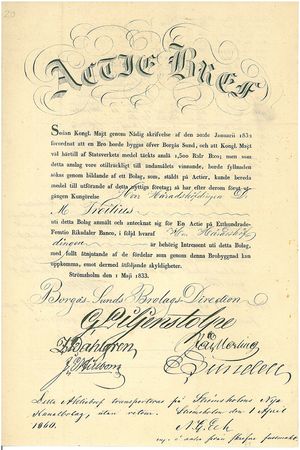 20
ACTIE BREF
Sedan Kongl. Majt genom Nådig skrifvelse af den 20:de Januarii 1832
förordnat att en Bro borde byggas öfver Borgås Sund, och att Kongl. Majt
väl härtill af Statsverkets medel täckts anslå 1,500 Rdlr Bco; men som
detta anslag vore otillräckligt till ändamålets vinnande, borde fyllnaden
sökas genom bildande af ett Bolag, som, ställdt på Actier, kunde bereda
medel till utförande af detta nyttiga företag; så har efter derom föregå-
ången Kungörelse Herr Häradshöfdingen
M Troilius
uti detta Bolag anmält och antecknat sig för En Actie på Etthundrade-
Femtio Riksdaler Banco, i följd hvaraf Herr Häradshöf-
dingen är behörig Intressent uti detta Bolag,
med fullt åtnjutande af de fördelar som genom denna Brobyggnad kan
uppkomma, emot dermed åtföljande skyldigheter.
Strömsholm den 1 Maji 1833.
Borgås Sunds Brolags Direction
G Liljenstolpe
Dahlgren
Sundell
Detta Aktiebref transporteras på Strömsholms Nya
Kanalbolag, utan Strömsholm den 1 April
1860.